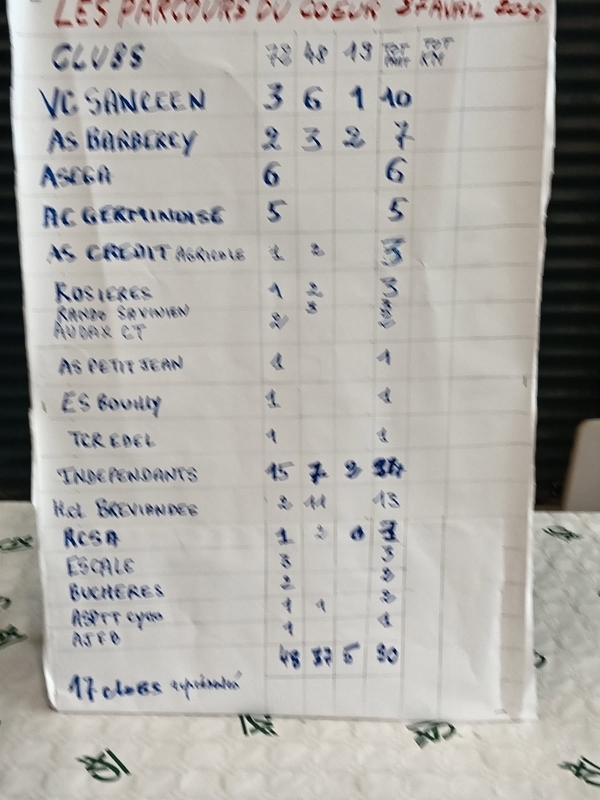 LES PARCOURS DU COEUR AVRIL
CLUBS 78 48 19 TOT TOT KM
VC SANCEEN 3 6 1 10
AS BARBEREY 2 3 2 7
ASEGA 6 6
AC GERMINOISE 5 5
AS CREDIT AGRICOLE 1 2 3
ROSIERES 1 2 3
RANDO SAVINIEN 3 3
AUDAX CT 2 2
AS PETIT JEAN 1 1
ES BOUILLY 1 1
TCR EDEL 1 1
INDEPENDANTS 15 7 2
BREVIANDES 2 11 13
RCSA 1 2
ESCALE 3 3
BUCHERES 2 2
ASPTT cyclo 1 1 2
1 1
48 37 5 90
17 clubs